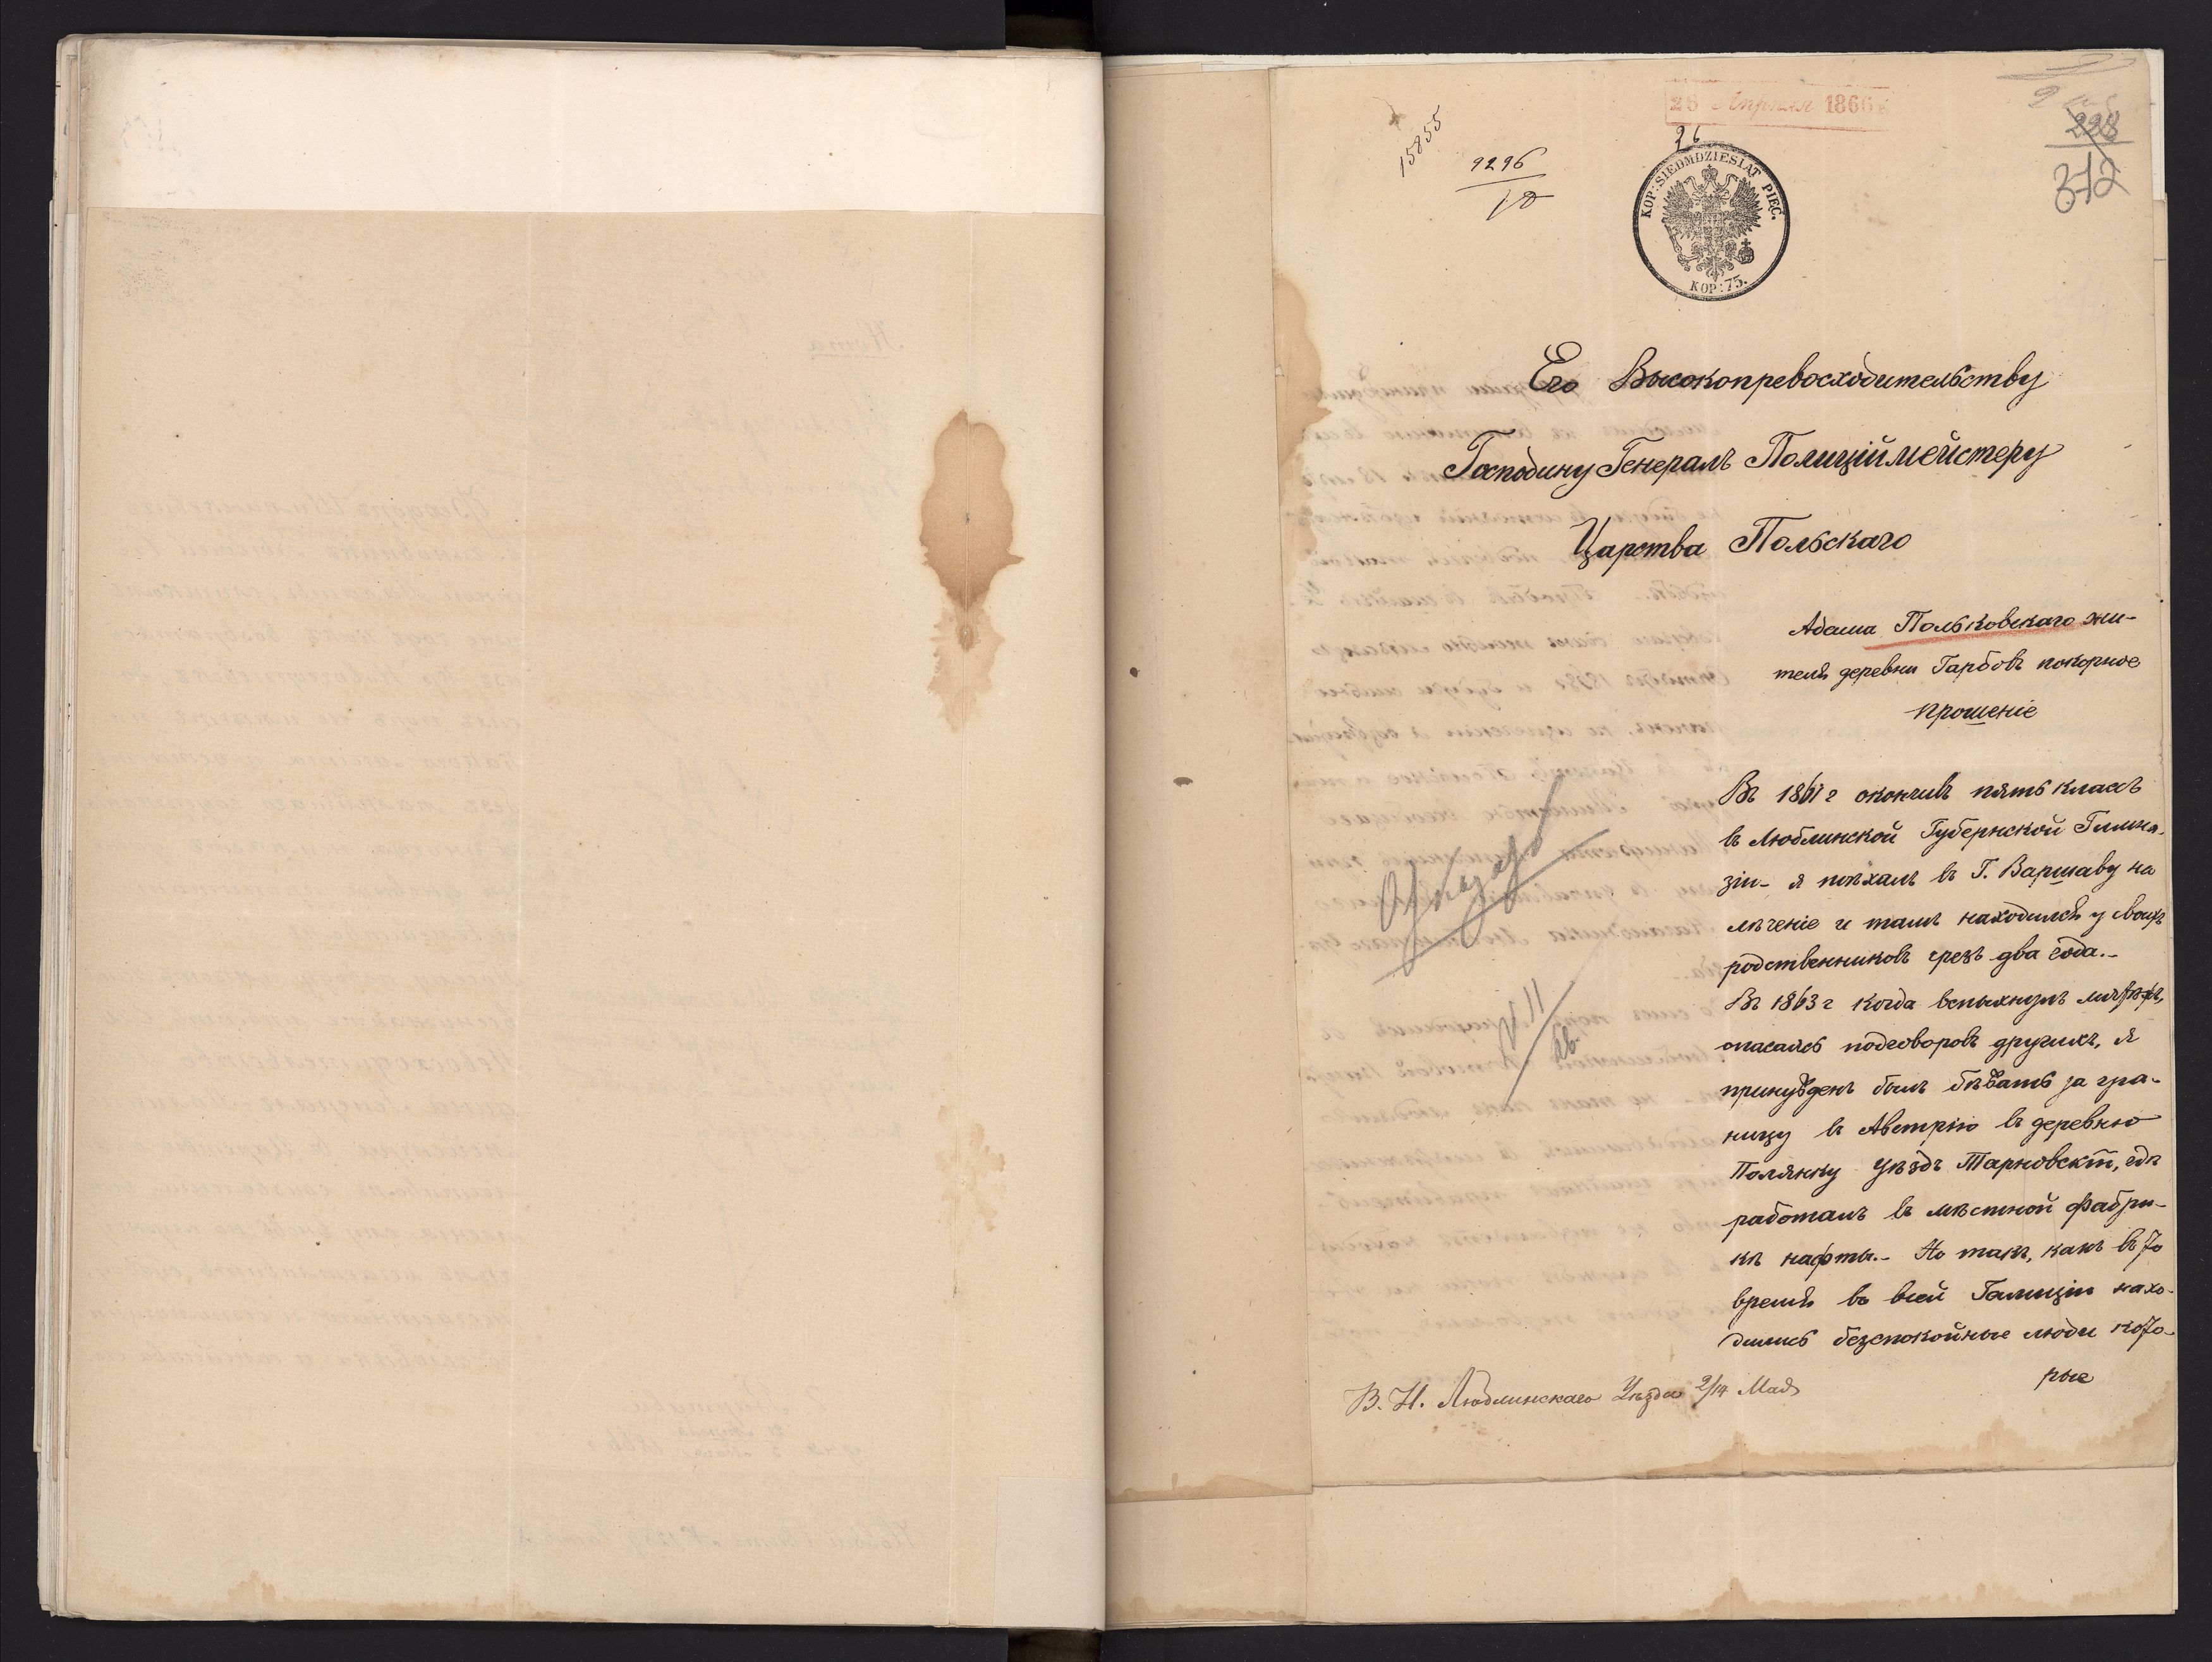 28 Апрѣля 1866
26
15855
9296
10
228
312
KOP: SIEDMDZIESIĄT PIĘĆ.
KOP: 75.
Его Высокопревосходительству
Господину Генералъ Полиціймейстеру
Царства Польскаго
Адама Польковскаго жи-
теля деревни Гарбовъ покорное
прошеніе
Въ 1861 г окончивъ пять классъ
въ Люблинской Губернской Гимна-
зіи - я поѣхалъ въ Г. Варшаву на
лѣченіе и тамъ находился у своихъ
родственниковъ чрезъ два года.-
Въ 1863 г когда вспыхнулъ мятѣжъ,
опасаясь подговоровъ другихъ, я
принужденъ былъ бѣжать за гра-
ницу въ Австрію въ деревню
Полянку уѣздъ Тарновскій, гдѣ
работалъ въ мѣстной фабри-
кѣ нафты.- Но такъ, какъ въ то
время во всей Галиціи нахо-
дились безспокойные люди кото-
рые
Отказать
В. Н. Люблинскаго Уѣзда 2/14 Мая